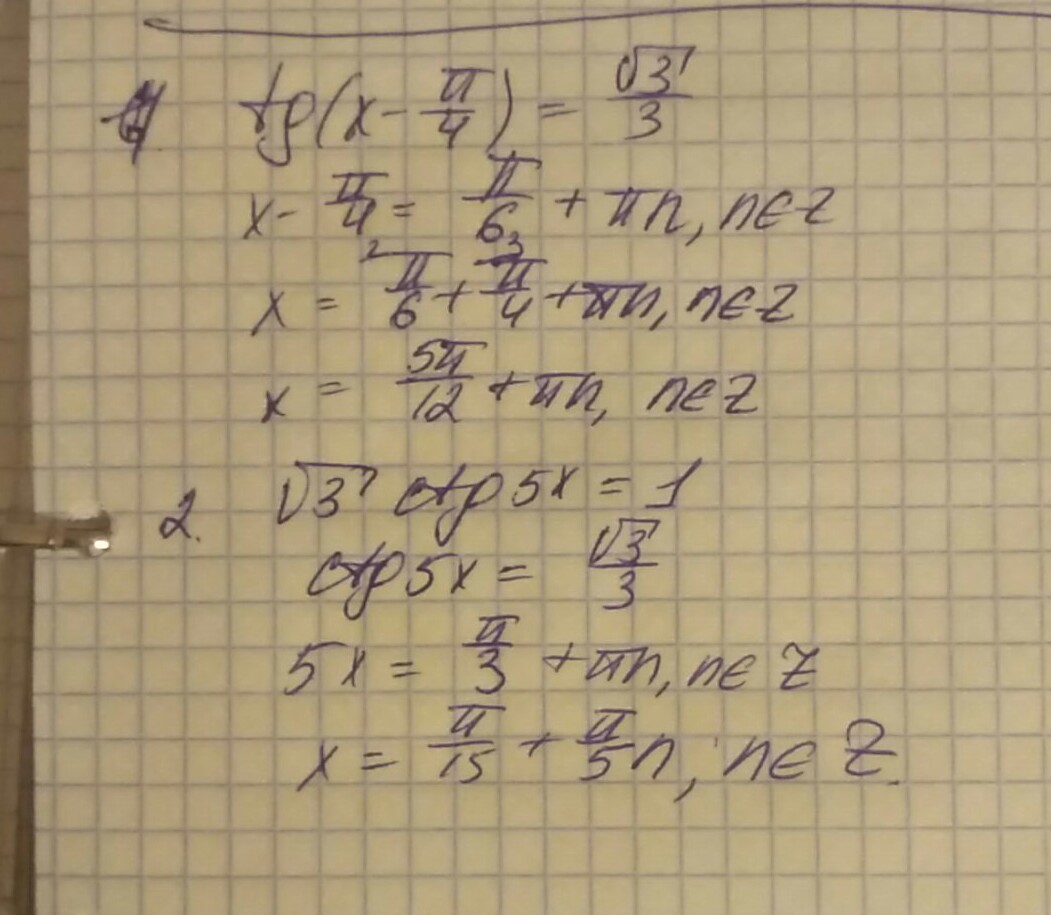 1 tg(x - π/4) = √3/3
x - π/4 = π/6 + πn, n∈Z
x = ²π/6 + ³π/4 + πn, n∈Z
x = 5π/12 + πn, n∈Z
2. √3 ctg 5x = 1
ctg 5x = √3/3
5x = π/3 + πn, n∈Z
x = π/15 + π/5 n, n∈Z.